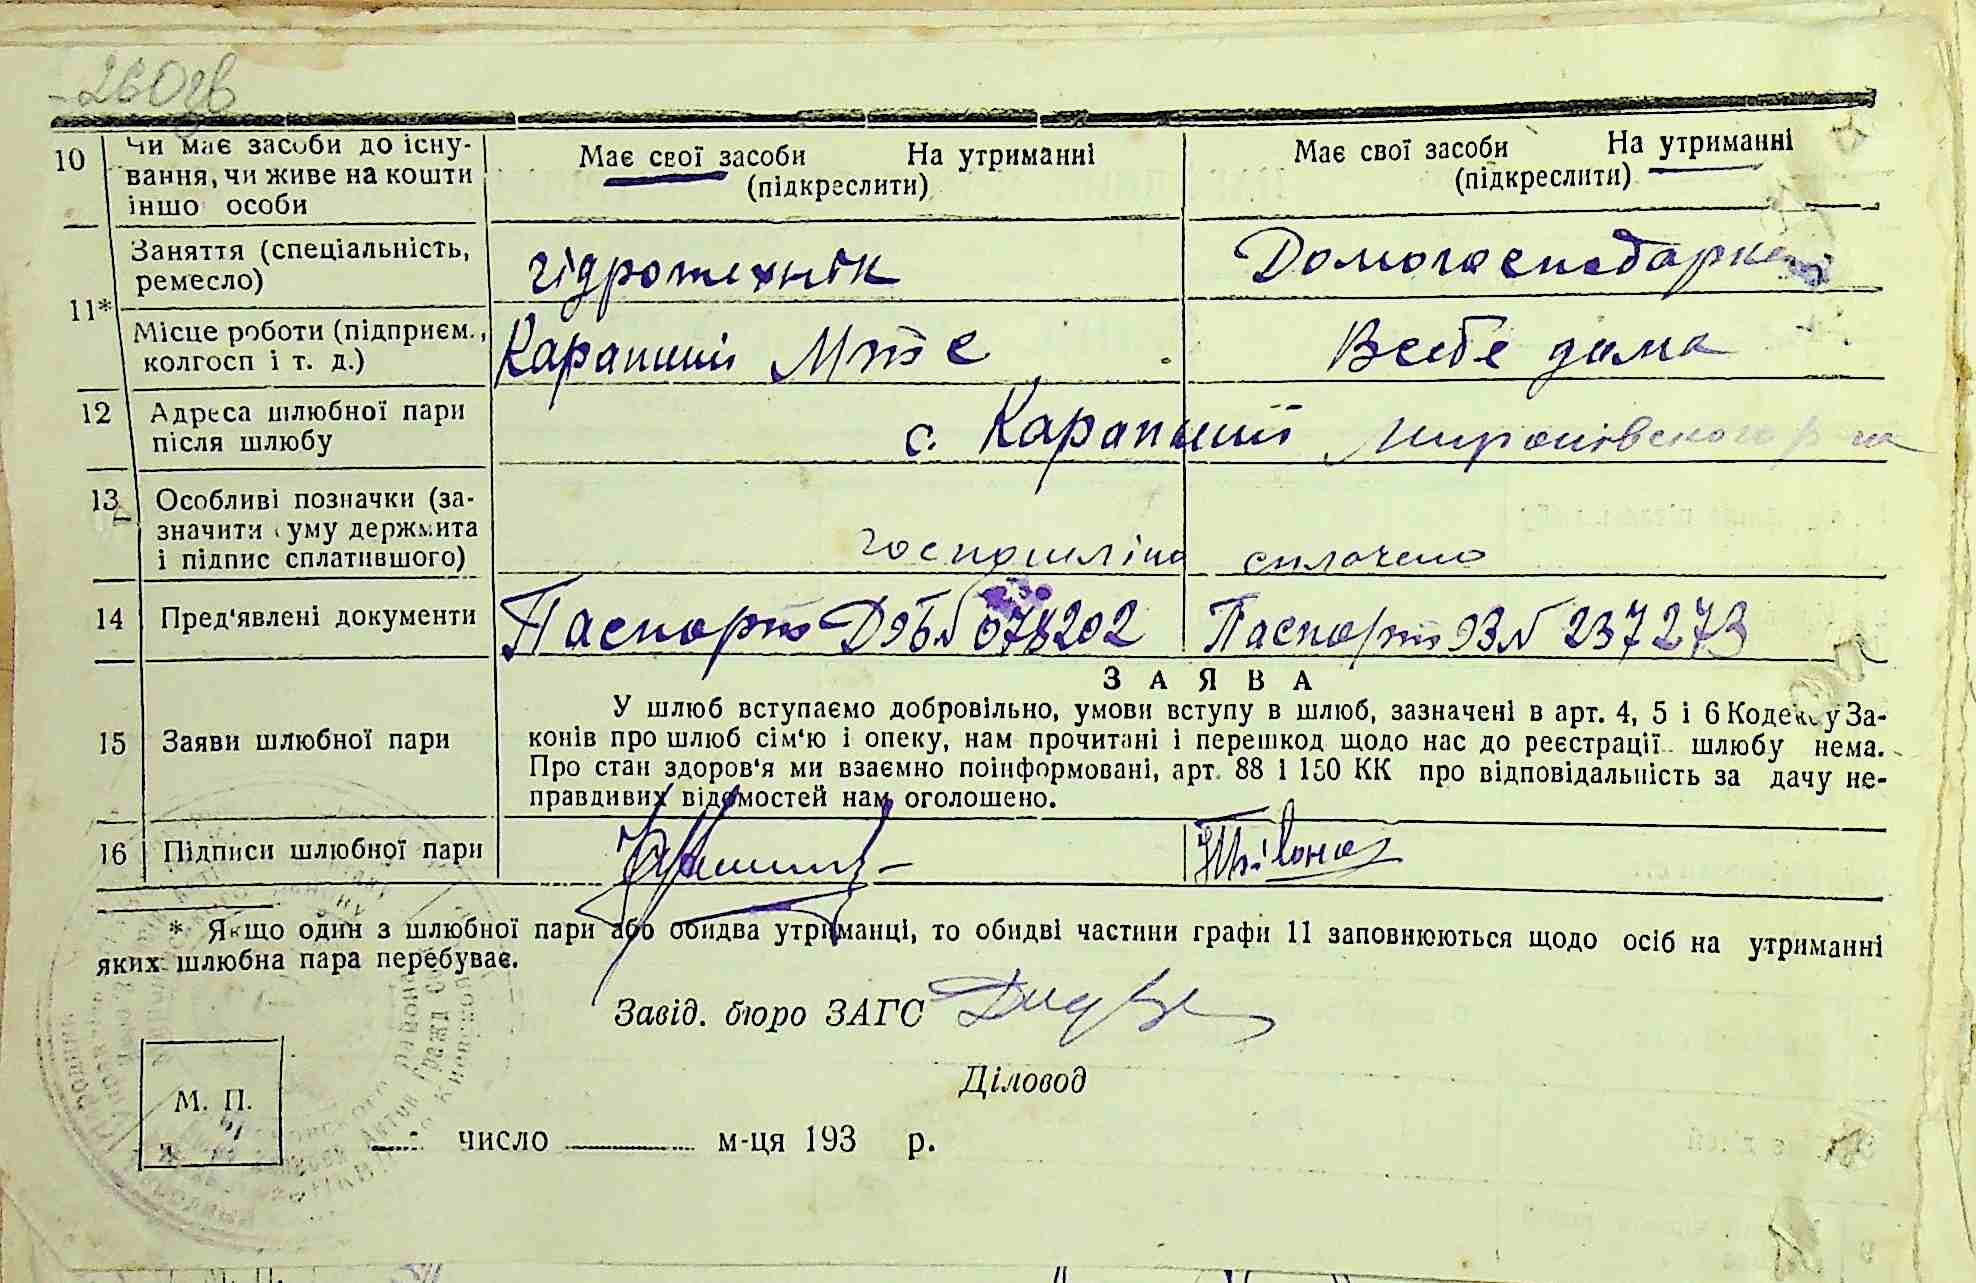 260зв
10 Чи має засоби до існу-
вання, чи живе на кошти
іншо особи
Має свої засоби На утриманні
(підкреслити)
Має свої засоби На утриманні
(підкреслити)
11* Заняття (спеціальність,
ремесло)
гідротехнік
Домогосподарка
Місце роботи (підприєм.,
колгосп і т. д.)
Карапиші МТС
В себе дома
12 Адреса шлюбної пари
після шлюбу
с. Карапиші Миронівского р на
13 Особливі позначки (за-
значити суму держмита
і підпис сплатившого)
госпошліна сплочено
14 Пред'явлені документи
Паспорт № 078202
Паспорт ЭЗ № 237273
15 Заяви шлюбної пари
ЗАЯВА
У шлюб вступаємо добровільно, умови вступу в шлюб, зазначені в арт. 4, 5 і 6 Кодексу За-
конів про шлюб сім'ю і опеку, нам прочитані і перешкод щодо нас до реєстрації шлюбу нема.
Про стан здоров'я ми взаємно поінформовані, арт. 88 і 150 КК про відповідальність за дачу не-
правдивих відомостей нам оголошено.
16 Підписи шлюбної пари
* Якщо один з шлюбної пари або обидва утриманці, то обидві частини графи 11 заповнюються щодо осіб на утриманні
яких шлюбна пара перебуває.
Завід. бюро ЗАГС
Діловод
М. П.
число м-ця 193 р.